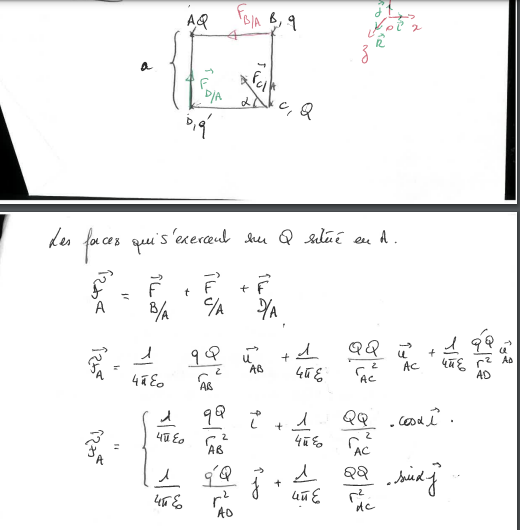 A Q F⃗ B/A B, q
j⃗ o i⃗ x
k⃗
z
a F⃗ D/A F⃗ C/A
α
D, q' C, Q
Les forces qui s'exercent sur Q située en A.
F⃗_A = F⃗_B/A + F⃗_C/A + F⃗_D/A
F⃗_A = 1/4πε₀ qQ/r_AB² u⃗_AB + 1/4πε₀ QQ/r_AC² u⃗_AC + 1/4πε₀ q'Q/r_AD² u⃗_AD
F⃗_A = { 1/4πε₀ qQ/r_AB² i⃗ + 1/4πε₀ QQ/r_AC² . cosα i⃗ .
1/4πε₀ q'Q/r_AD² j⃗ + 1/4πε₀ QQ/r_AC² . sinα j⃗